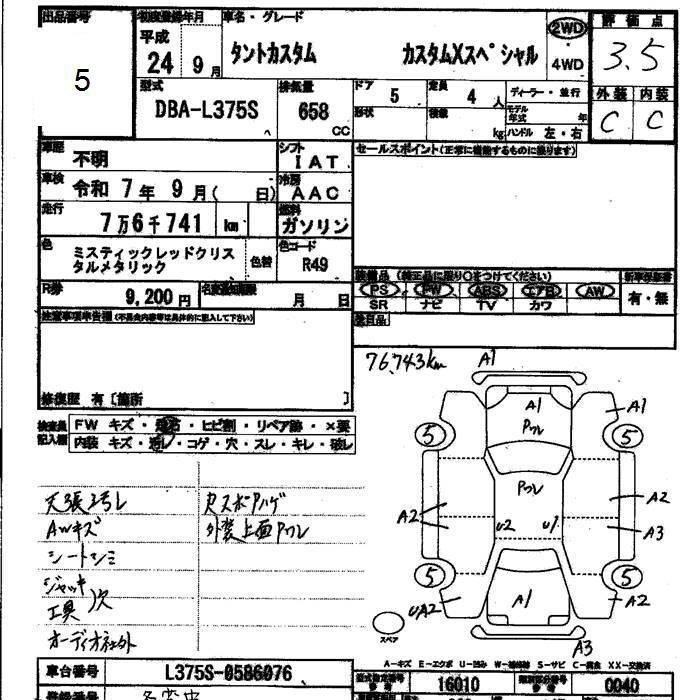 出品番号
5
初度登録年月
平成
24 9 月
車名・グレード
タントカスタム カスタムXスペシャル
2WD
・
4WD
評価点
3.5
外装 内装
C C
型式
DBA-L375S
排気量
658
CC
ドア
5
定員
4 人
形状
積載
kg
ディーラー・並行
モデル年式 年
ハンドル 左・右
車歴
不明
シフト
IAT
車検
令和 7 年 9 月( 日)
冷房
AAC
走行
7万6千741 km
燃料
ガソリン
色
ミスティックレッドクリス
タルメタリック
色替
色コード
R49
R券
9,200 円
名変登録期限
月 日
セールスポイント(正常に機能するものに限ります)
装備品 (純正品に限り○をつけてください)
PS PW ABS エアB AW
SR ナビ TV カワ
新車保証書
有・無
注意事項申告欄(不具合内容等は具体的に記入して下さい)
修復歴 有 [箇所 ]
検査員
記入欄
FW キズ・飛石・ヒビ割・リペア跡・×要
内装 キズ・汚レ・コゲ・穴・スレ・キレ・破レ
天張ヨゴレ
AWキズ
シートシミ
ジャッキ
工具
欠
オーディオ社外
外装上面Pワレ
76,743km
A1
A1
Pワレ
A1
5
5
Pワレ
A2
A2
A3
U2
U1
5
5
UA2
A1
A2
A3
スペア
A-キズ E-エクボ U-凹み W-補修跡 S-サビ C-腐食 XX-交換済
車台番号
L375S-0586076
型式指定番号
16010
類別区分番号
0040